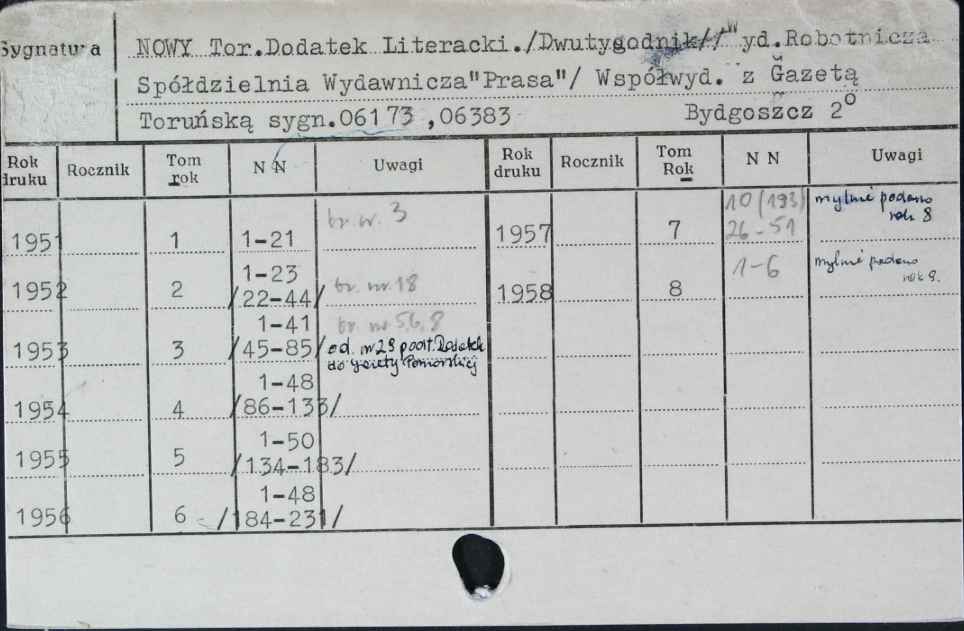 Sygnatura
NOWY Tor.Dodatek Literacki./Dwutygodnik// Wyd.Robotnicza
Spółdzielnia Wydawnicza"Prasa"/ Współwyd. z Gazetą
Toruńską sygn.06173 ,06383 Bydgoszcz 2⁰
Rok druku Rocznik Tom rok N N Uwagi Rok druku Rocznik Tom Rok N N Uwagi
1951 1 1-21 br. nr. 3 1957 7 10 (193) 26-51 mylnie podano rok 8
1952 2 1-23 /22-44/ br. nr. 18 1958 8 1-6 mylnie podano rok 9.
1953 3 1-41 /45-85/ br. nr 5,6,8 od nr 29 podt. Dodatek do gazety Pomorskiej
1954 4 1-48 /86-133/
1955 5 1-50 /134-183/
1956 6 1-48 /184-231/